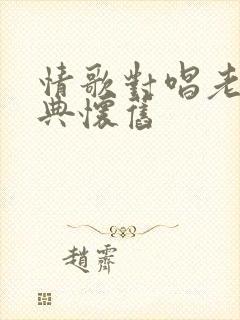 情歌對唱老
典懷舊
趙霽